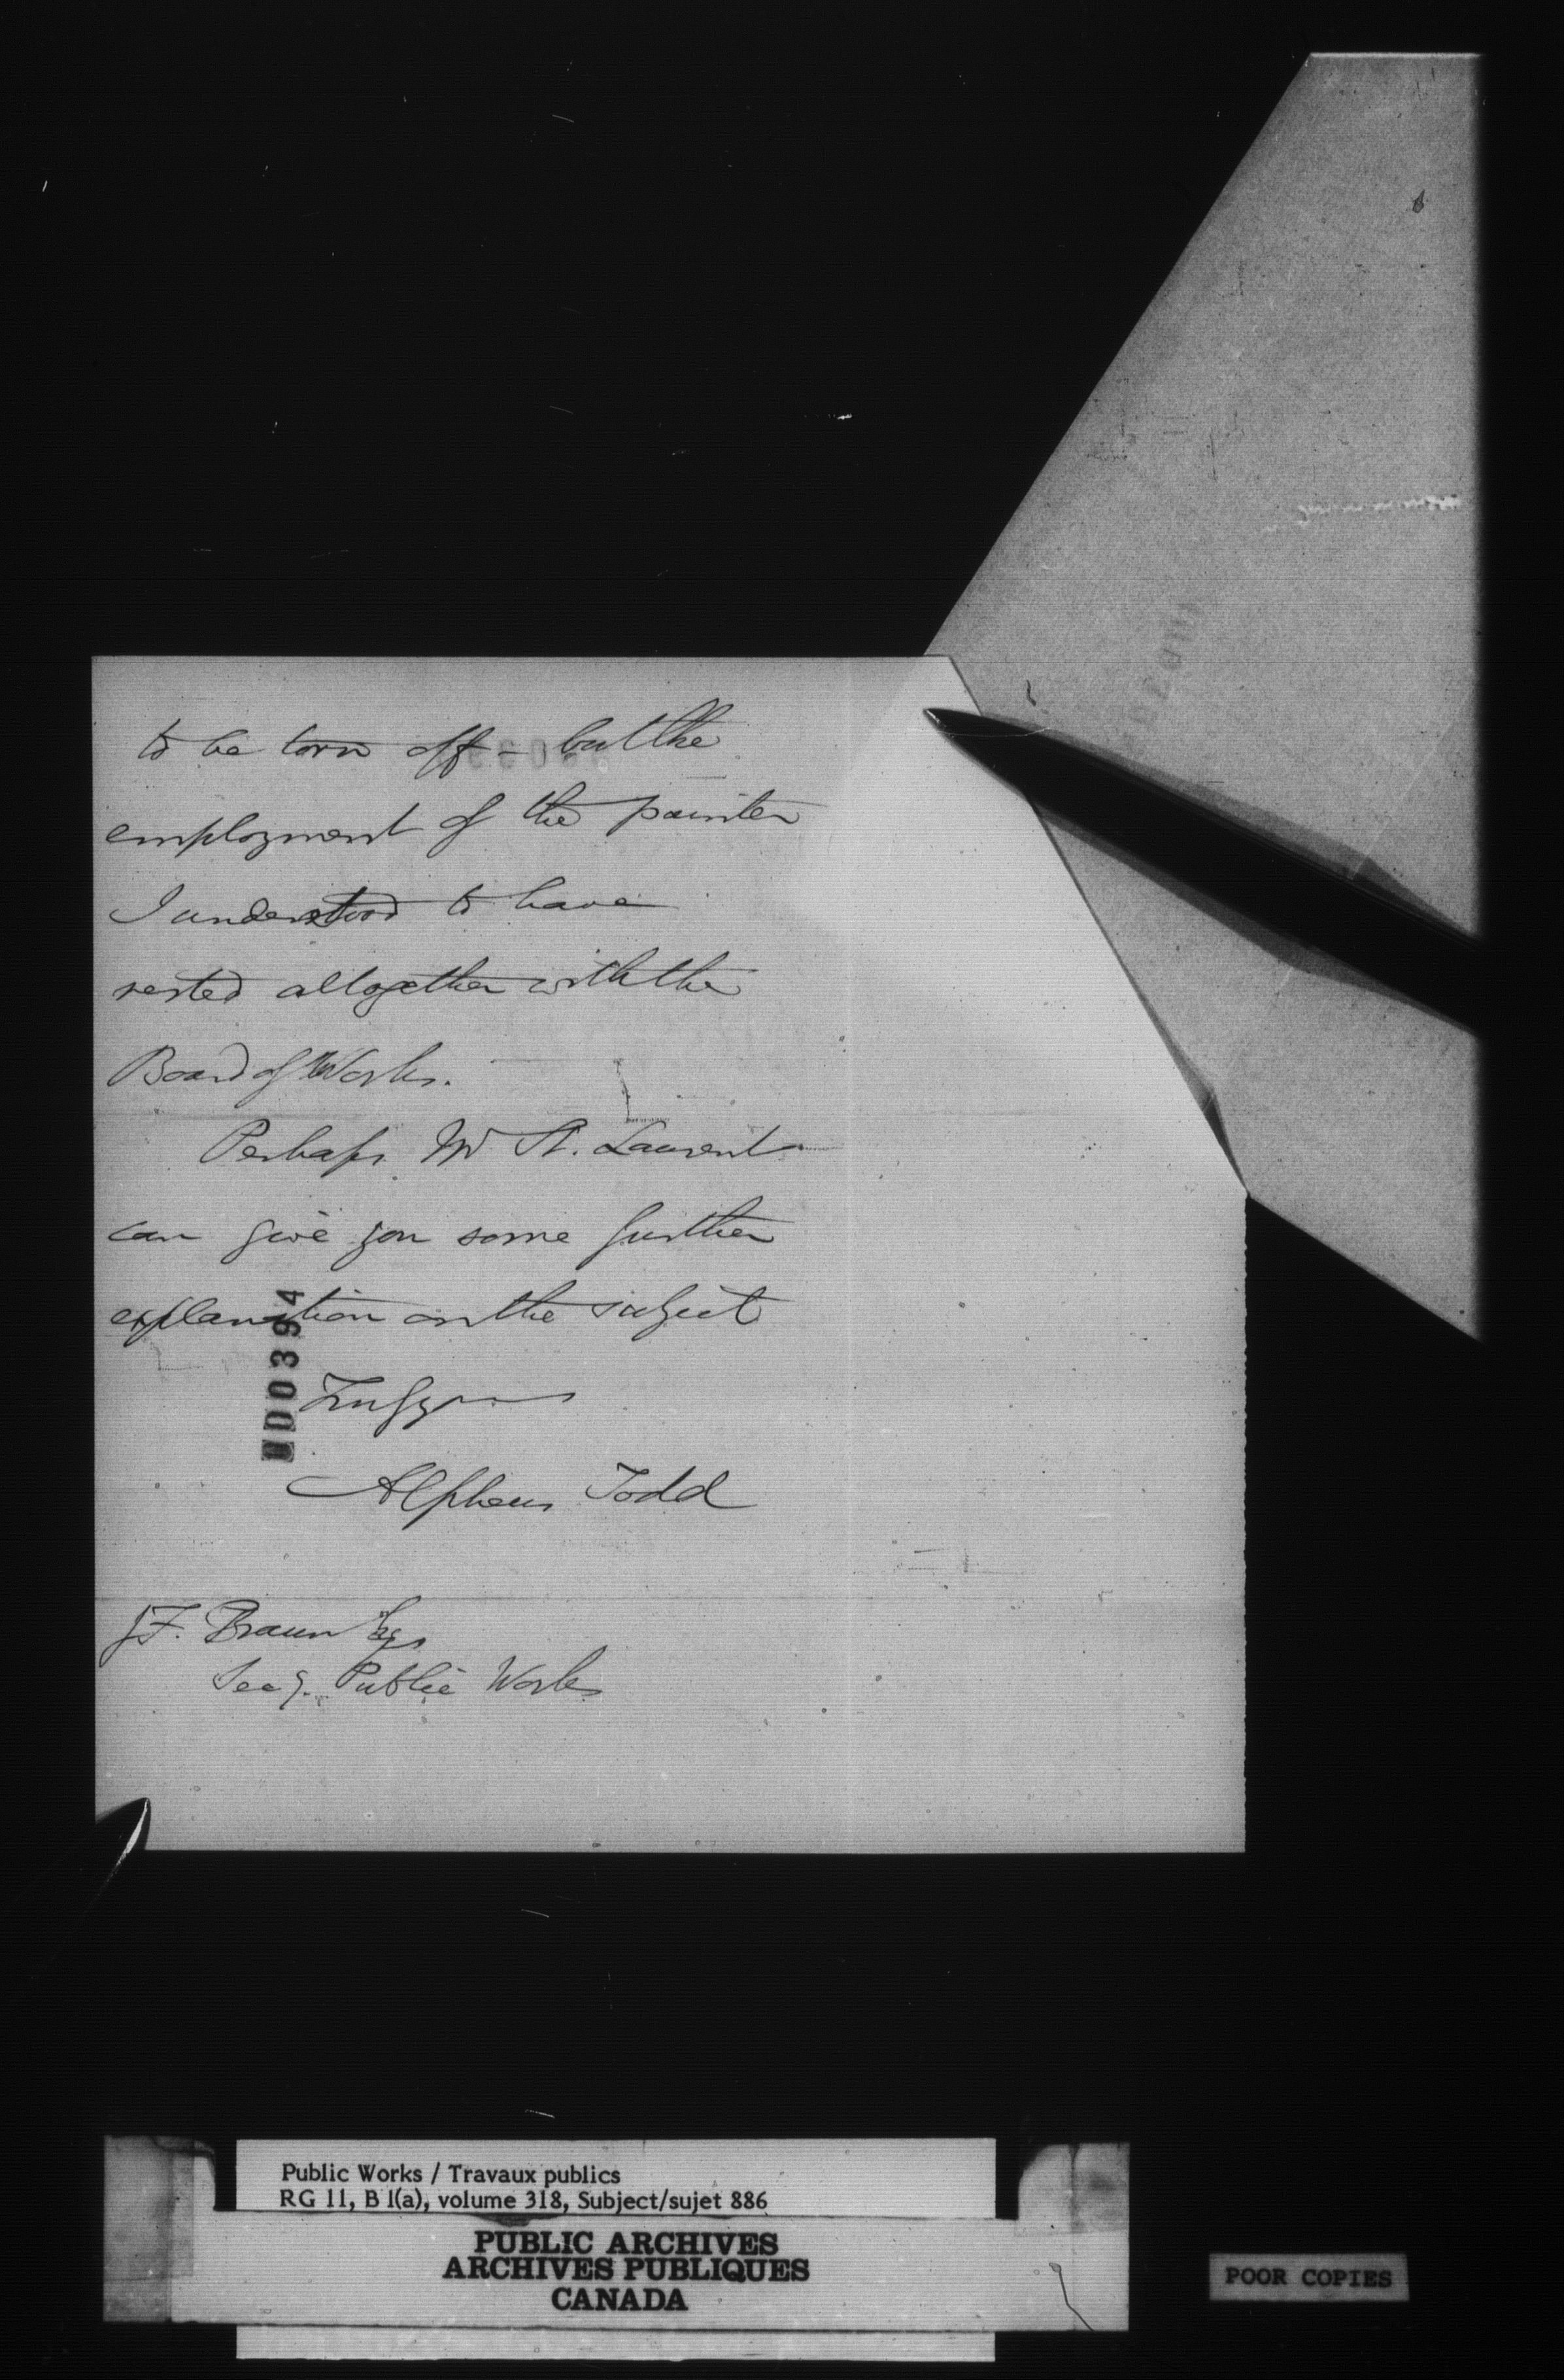 to be torn off - but the
employment of the painter
I understood to have
rested altogether with the
Board of Works.
Perhaps Mr St. Laurent
can give you some further
explanation on the subject
000394
Truly yrs
Alpheus Todd
J F. Braun Esq
Secy. Public Works
Public Works / Travaux publics
RG 11, B 1(a), volume 318, Subject/sujet 886
PUBLIC ARCHIVES
ARCHIVES PUBLIQUES
CANADA
POOR COPIES